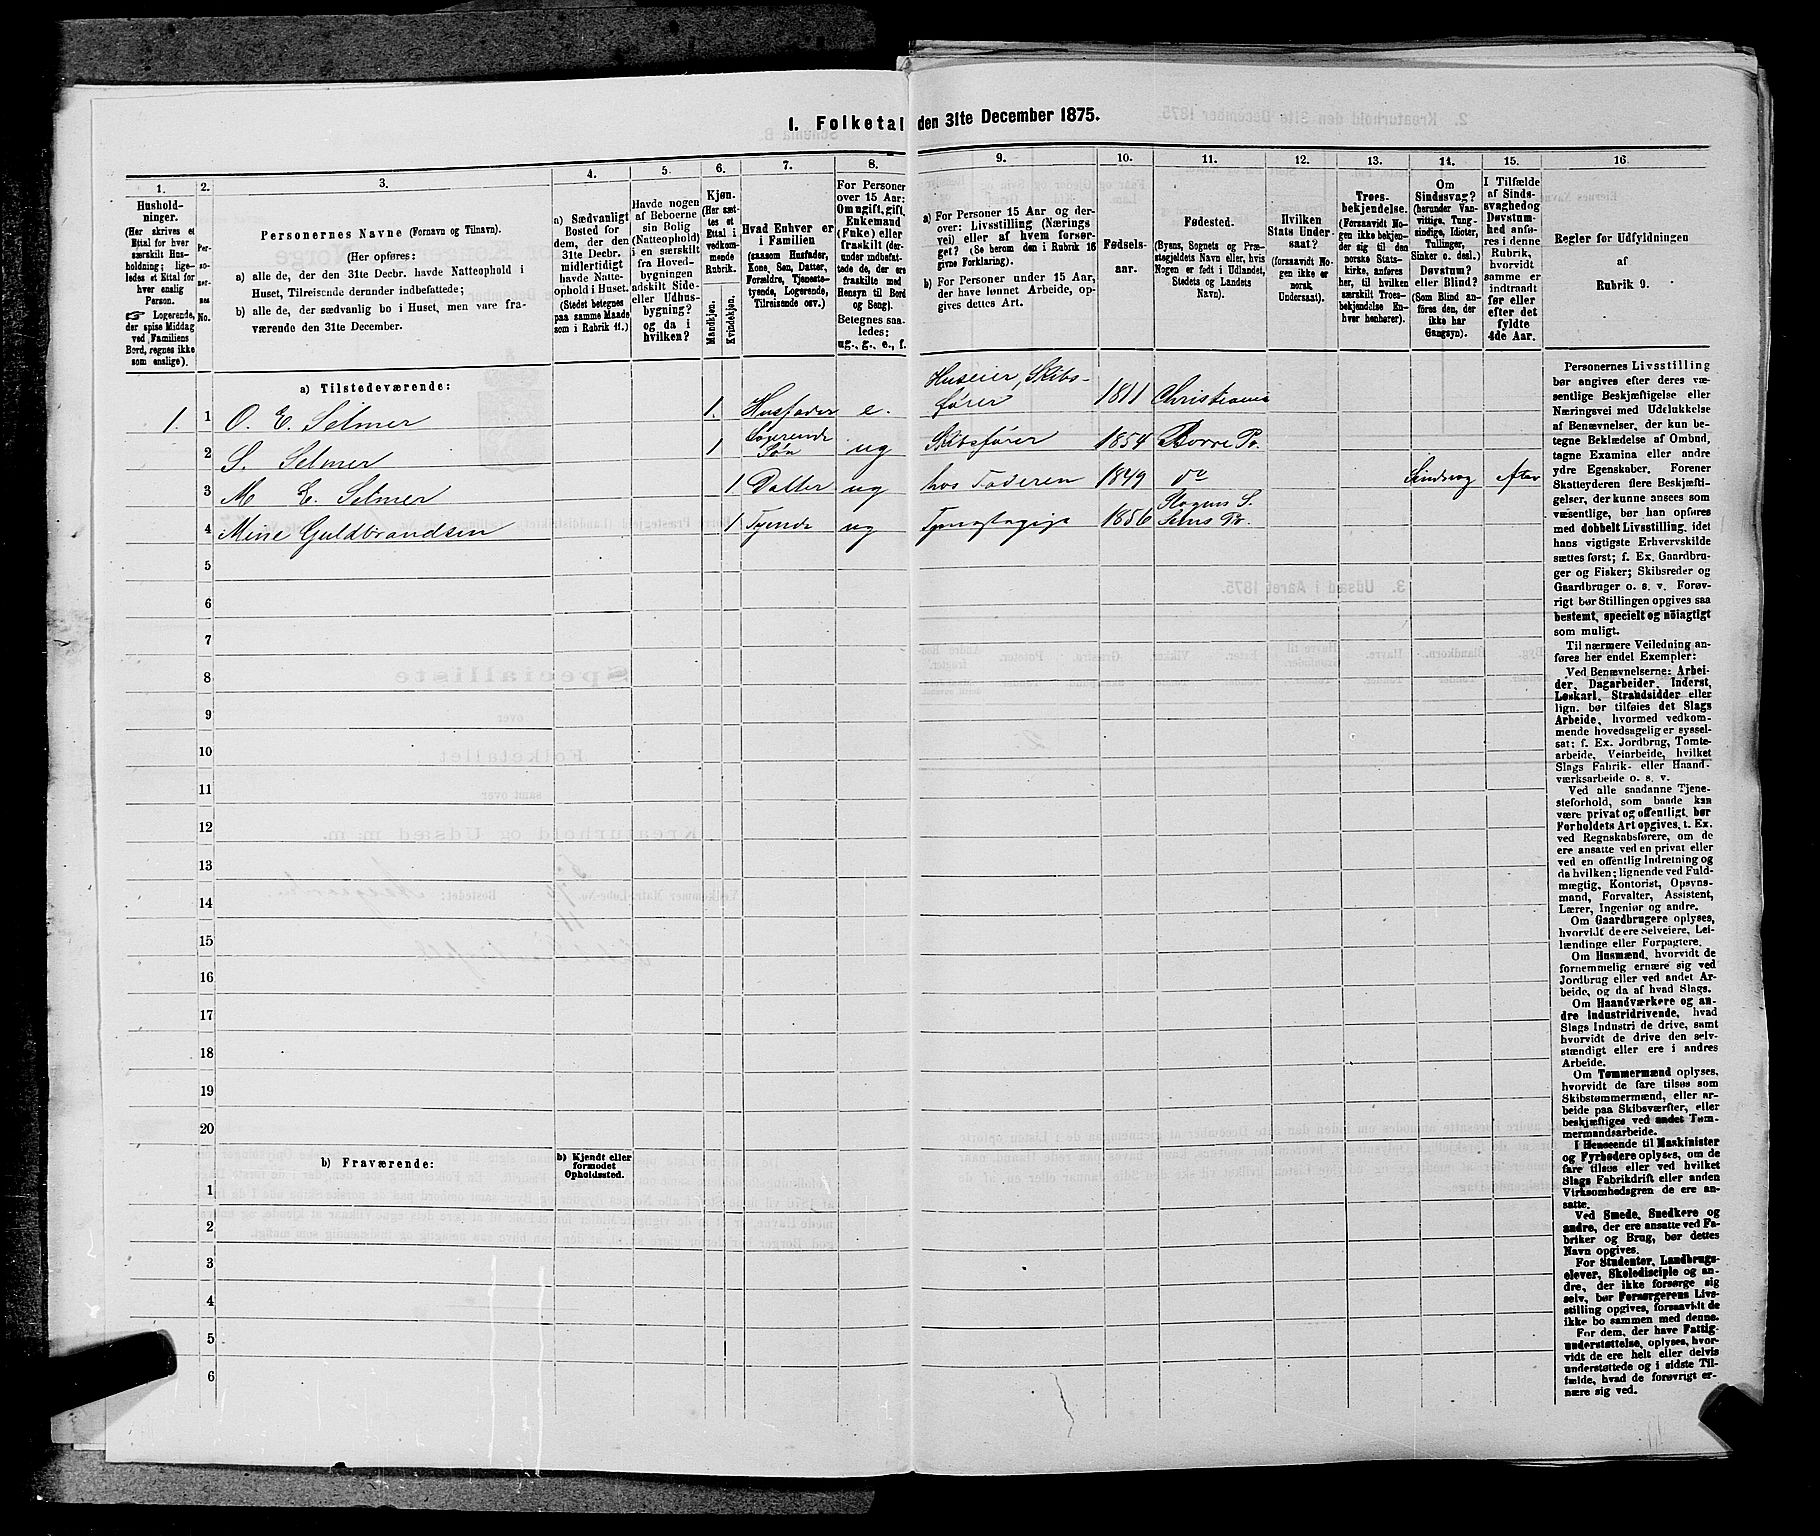 I. Folketal den 31te December 1875.
1.
Hushold-
ninger.
(Her skrives et
Ettal for hver
særskilt Hus-
holdning; lige-
ledes et Ettal for
hver enslig
Person.
☞ Logerende,
der spise Middag
ved Familiens
Bord, regnes ikke
som enslige).
2.
Per-
so-
ner-
nes
No.
3.
Personernes Navne (Fornavn og Tilnavn).
(Her opføres:
a) alle de, der den 31te Decbr. havde Natteophold i
Huset, Tilreisende derunder indbefattede;
b) alle de, der sædvanlig bo i Huset, men vare fra-
værende den 31te December.
4.
a) Sædvanligt
Bosted for
dem, der den
31te Decbr.
midlertidigt
havde Natte-
ophold i Huset.
(Stedet betegnes
paa samme Maade
som i Rubrik 11.)
5.
Havde nogen
af Beboerne
sin Bolig
(Natteophold)
i en særskilt
fra Hoved-
bygningen
adskilt Side-
eller Udhus-
bygning?
og da i
hvilken?
6.
Kjøn.
(Her sæt-
tes et
Ettal i
vedkom-
mende
Rubrik.
Mandkjøn.
Kvindekjøn.
7.
Hvad Enhver er
i Familien
(saasom Husfader,
Kone, Søn, Datter,
Forældre, Tjeneste-
tyende, Logerende,
Tilreisende osv.)
8.
For Personer
over 15 Aar:
Om ugift, gift,
Enkemand
(Enke) eller
fraskilt (der-
under indbefat-
tede de, der ere
fraskilte med
Hensyn til Bord
og Seng).
Betegnes saa-
ledes:
ug., g., e., f.
9.
a) For Personer 15 Aar og der-
over: Livsstilling (Nærings
vei) eller af hvem forsør-
get? (Se herom den i Rubrik 16
givne Forklaring).
b) For Personer under 15 Aar,
der have lønnet Arbeide, op-
gives dettes Art.
10.
Fødsels-
aar.
11.
Fødested.
(Byens, Sognets og Præ-
stegjeldets Navn eller, hvis
Nogen er født i Udlandet,
Stedets og Landets
Navn).
12.
Hvilken
Stats Under-
saat?
(foraavidt No-
gen ikke er
norsk
Undersaat).
13.
Troes-
bekjendelse.
(Forsaavidt No-
gen ikke bekjen-
der sig til den
norske Stats-
kirke, anføres
her, til hvilken
særskilt Troes-
bekjendelse En-
hver henhører).
14.
Om
Sindssvag?
(herunder Van-
vittige, Tung-
sindige, Idioter,
Tullinger,
Sinker o. desl.)
Døvstum?
eller Blind?
(Som Blind an-
føres den, der
ikke har
Gangsyn).
15.
I Tilfælde
af Sinds-
svaghed og
Døvstum-
hed anfø-
res i denne
Rubrik,
hvorvidt
samme er
indtraadt
før eller
efter det
fyldte
4de Aar.
16.
Regler for Udfyldningen
af
Rubrik 9.
a) Tilstedeværende:
1. 1 O. E. Selmer 1. Husfader e. Huseier, Skibs-
fører 1811 Christiania
2 S. Selmer 1 Logerende
Søn ug Skibsfører 1854 Borre Pr.
3 M E. Selmer 1 Datter ug hos Faderen 1849 do Sindsvag After
4 Mine Guldbrandsen 1 Tyende ug Tjenestepige 1856 Slagens S.
Sems Pr.
5
6
7
8
9
10
11
12
13
14
15
16
17
18
19
20
b) Fraværende:
b) Kjendt eller
formodet
Opholdssted.
1
2
3
4
5
6
Personernes Livsstilling
bør angives efter deres væ-
sentlige Beskjæftigelse eller
Næringsvei med Udelukkelse
af Benævnelser, der kun be-
tegne Beklædelse af Ombud,
tagne Examina eller andre
ydre Egenskaber. Forener
Skatteyderen flere Beskjæfti-
gelser, der kunne ansees som
væsentlige, bør han opføres
med dobbelt Livsstilling, idet
hans vigtigste Erhvervskilde
sættes først; f. Ex. Gaardbru-
ger og Fisker; Skibsreder og
Gaardbruger o. s. v. Forøv-
rigt bør Stillingen opgives saa
bestemt, specielt og nøiagtigt
som muligt.
Til nærmere Veiledning an-
føres her endel Exempler:
Ved Benævnelserne: Arbei-
der, Dagarbeider, Inderst,
Løskarl, Strandsidder eller
lign. bør tilføies det Slags
Arbeide, hvormed vedkom-
mende hovedsagelig er syssel-
sat; f. Ex. Jordbrug, Tomte-
arbeide, Veiarbeide, hvilket
Slags Fabrik- eller Haand-
værksarbeide o. s. v.
Ved alle saadanne Tjene-
steforhold, som baade kan
være privat og offentligt, bør
Forholdets Art opgives, t. Ex.
ved Regnskabsførere, om de
ere ansatte ved en privat eller
ved en offentlig Indretning og
da hvilken; lignende ved Fuld-
mægtig, Kontorist, Opsyns-
mand, Forvalter, Assistent,
Lærer, Ingeniør og andre.
Om Gaardbrugere oplyses,
hvorvidt de ere Selveiere, Lei-
lændinge eller Forpagtere.
Om Husmænd, hvorvidt de
fornemmelig ernære sig ved
Jordbrug eller ved andet Ar-
beide, og da af hvad Slags.
Om Haandværkere og an-
dre Industridrivende, hvad
Slags Industri de drive, samt
hvorvidt de drive den selv-
stændigt eller ere i andres
Arbeide.
Om Tømmermænd oplyses,
hvorvidt de fare tilsøs som
Skibstømmermænd, eller ar-
beide paa Skibsværfter, eller
beskjæftiges ved andet Tøm-
mermandsarbeide.
I Henseende til Maskinister
og Fyrbødere oplyses, om de
fare tilsøs eller ved hvilket
Slags Fabrikdrift eller anden
Virksomhedsgren de ere an-
satte.
Ved Smede, Snedkere og
andre, der ere ansatte ved Fa-
briker og Brug, bør dettes
Navn opgives.
For Studenter, Landbrugs-
elever, Skoledisciple og an-
dre, der ikke forsørge sig
selv, bør Forsørgerens Livs-
stilling opgives, forsaavidt de
ikke bo sammen med denne.
For dem, der have Fattig-
understøttelse, oplyses, hvor-
vidt de ere helt eller delvis
understøttede og i sidste Til-
fælde, hvad de forøvrigt er-
nære sig ved.